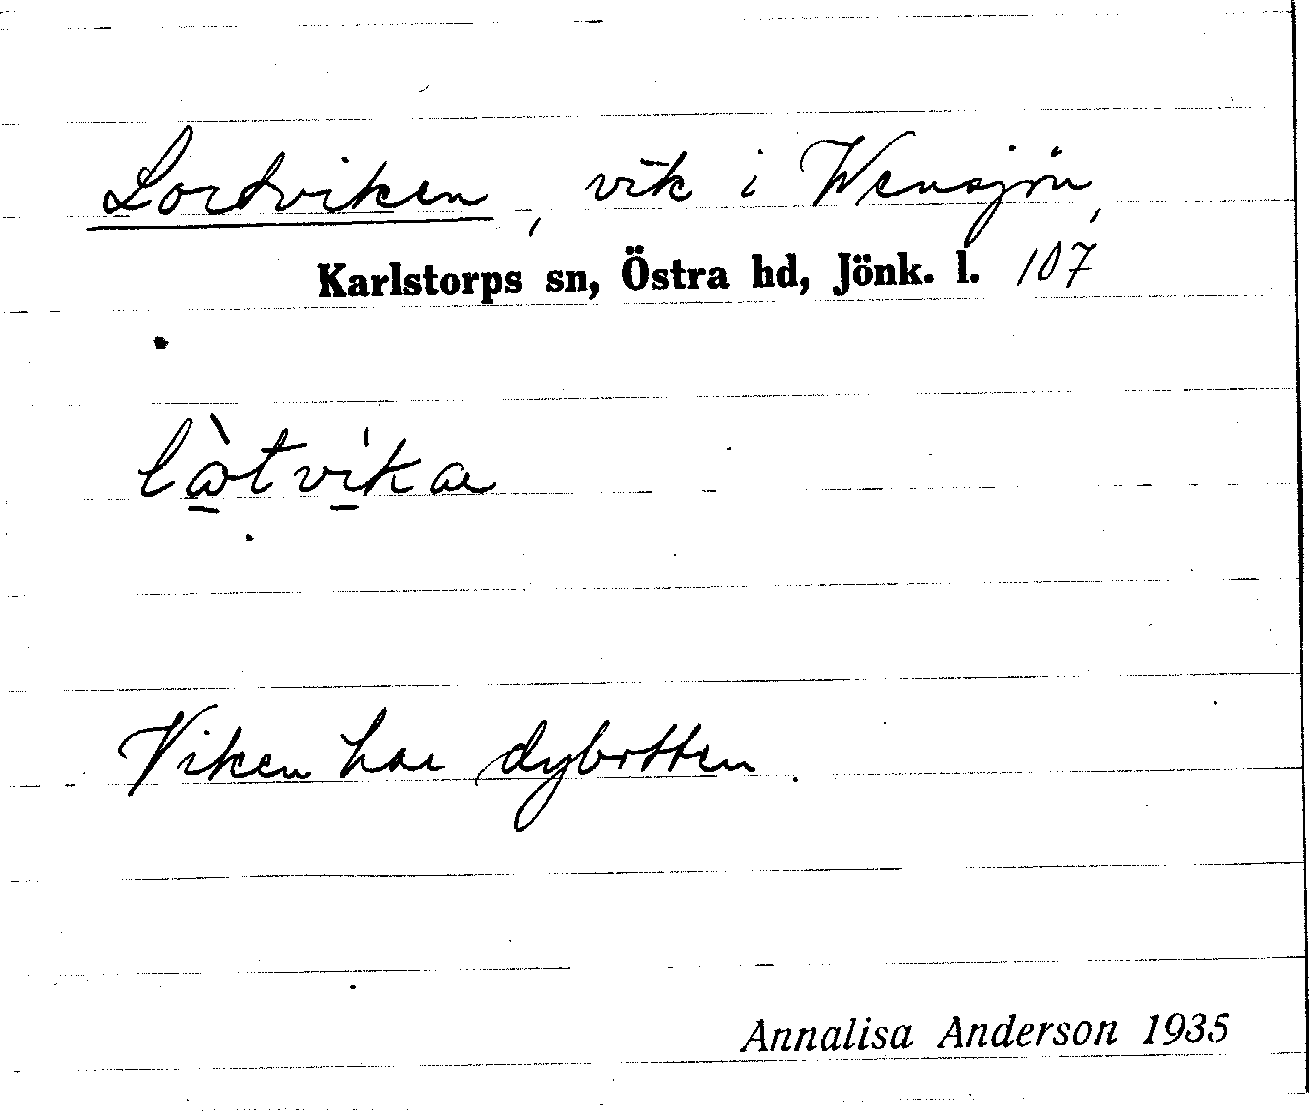 Lortviken, vik i Wensjön,
Karlstorps sn, Östra hd, Jönk. l. 107
Viken har dybotten.
Annalisa Anderson 1935